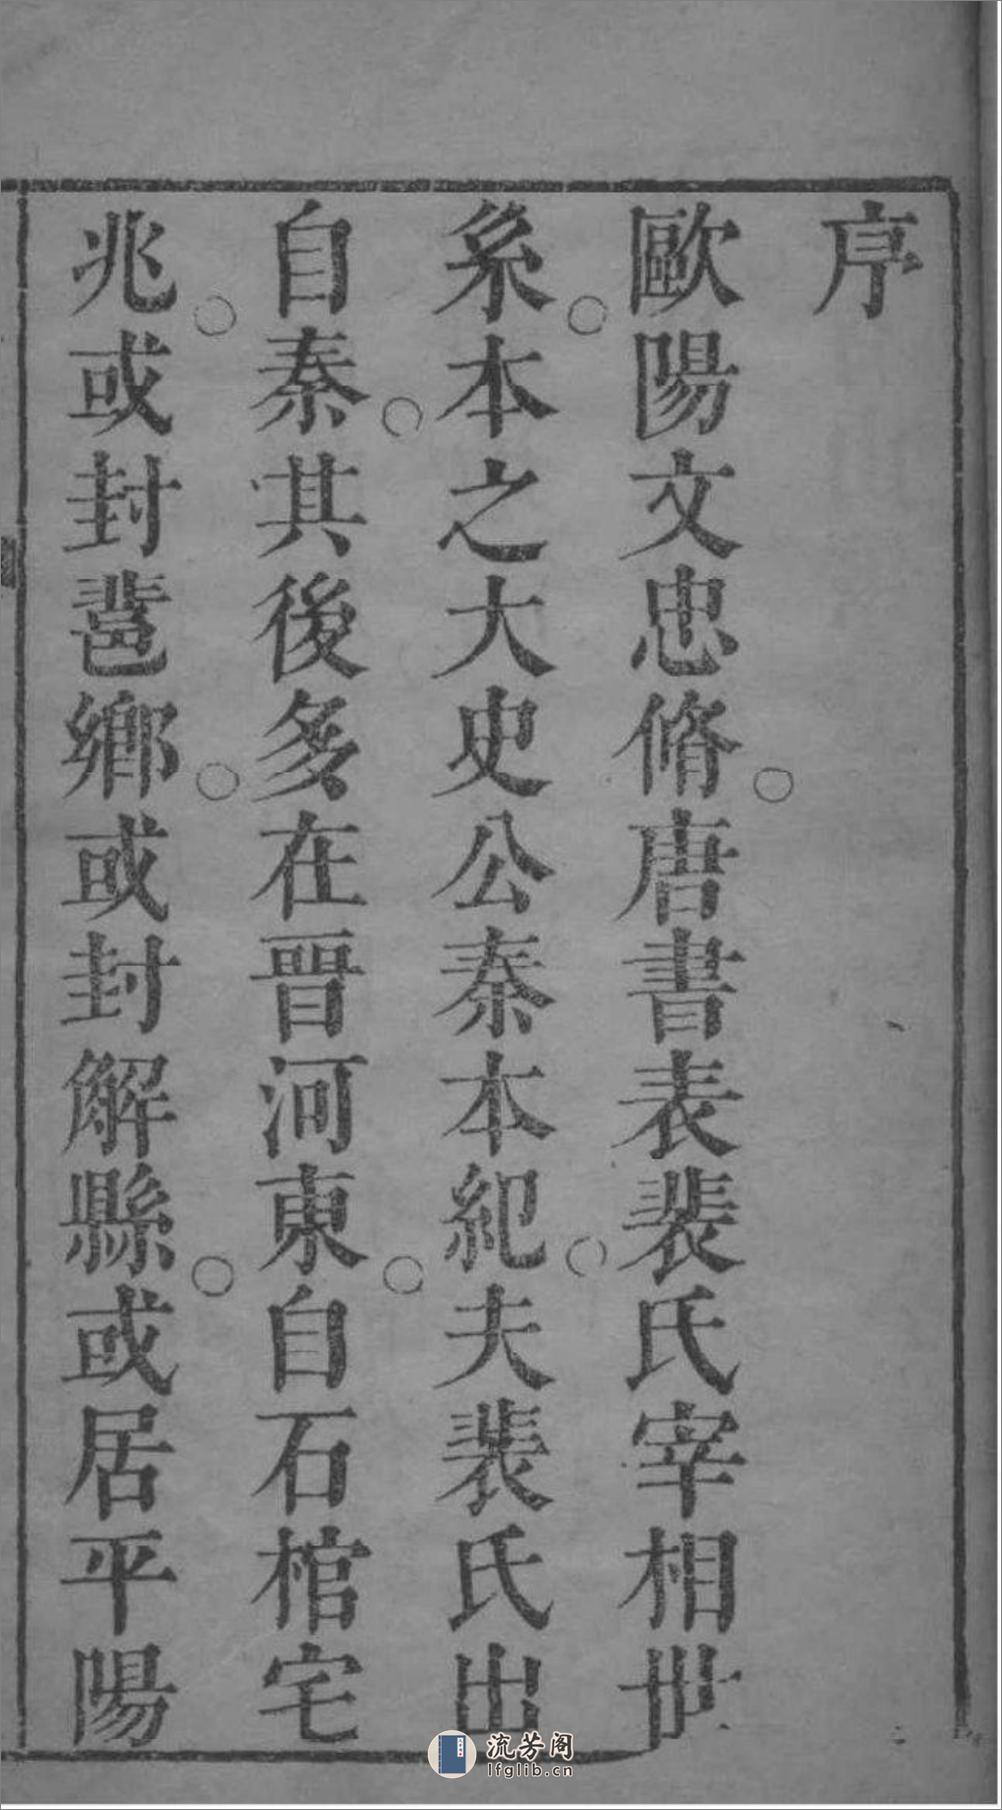 序
歐陽文忠脩唐書表裴氏宰相世
系本之大史公秦本紀夫裴氏出
自秦其後多在晉河東自石棺宅
兆或封𨛬鄉或封解縣或居平陽
流芳阁
lfglib.cn